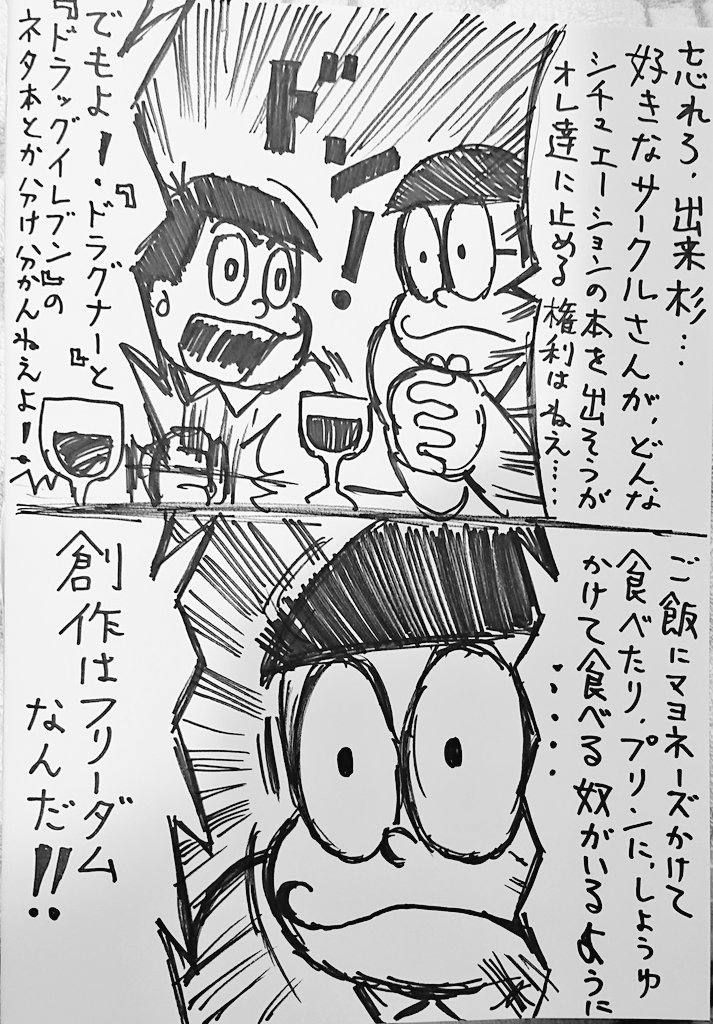 忘れろ、出来杉…
好きなサークルさんが、どんな
シチュエーションの本を出そうが
オレ達に止める権利はねえ……
ドーン!
でもよー、『ドラグナーと
『ドラッグイレブン』の
ネタ本とか分け分かんねえよー!
ご飯にマヨネーズかけて
食べたり、プリンに、しょうゆ
かけて食べる奴がいるように
……
創作はフリーダム
なんだ!!